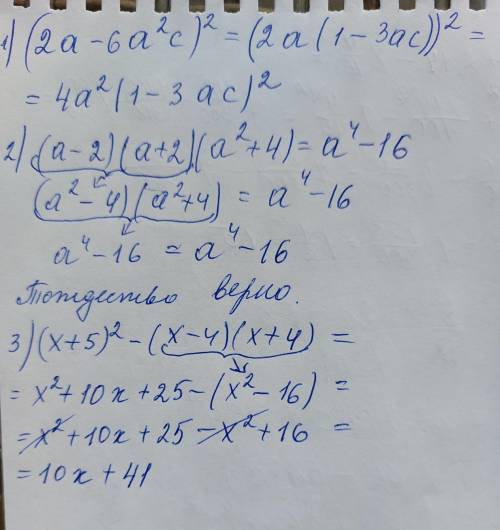 1) (2a - 6a²c)² = (2a(1 - 3ac))² =
= 4a²(1 - 3ac)²
2) (a - 2)(a + 2)(a² + 4) = a⁴ - 16
(a² - 4)(a² + 4) = a⁴ - 16
a⁴ - 16 = a⁴ - 16
Тождество верно.
3) (x + 5)² - (x - 4)(x + 4) =
= x² + 10x + 25 - (x² - 16) =
= x² + 10x + 25 - x² + 16 =
= 10x + 41